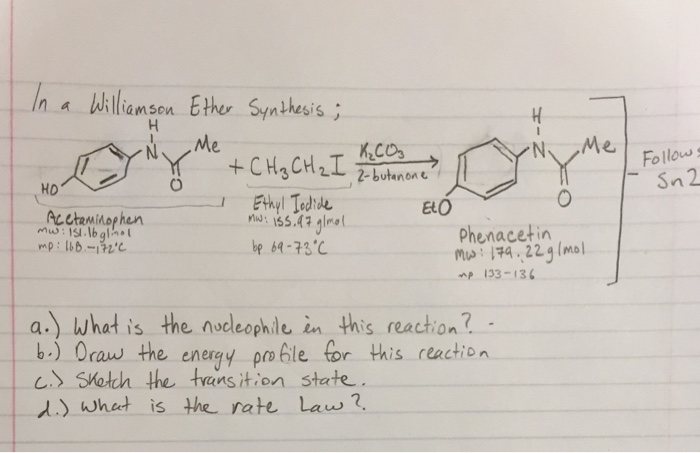 In a Williamson Ether Synthesis;
H
N
Me
O
HO
+ CH3CH2I
K2CO3
2-butanone
H
N
Me
O
EtO
Follows
Sn2
Acetaminophen
mw: 151.16 g/mol
mp: 168.-172°C
Ethyl Iodide
mw: 155.97 g/mol
bp 69-73°C
Phenacetin
mw: 179.22 g/mol
mp 133-136
a.) What is the nucleophile in this reaction? -
b.) Draw the energy profile for this reaction
c.) Sketch the transition state.
d.) What is the rate Law?.